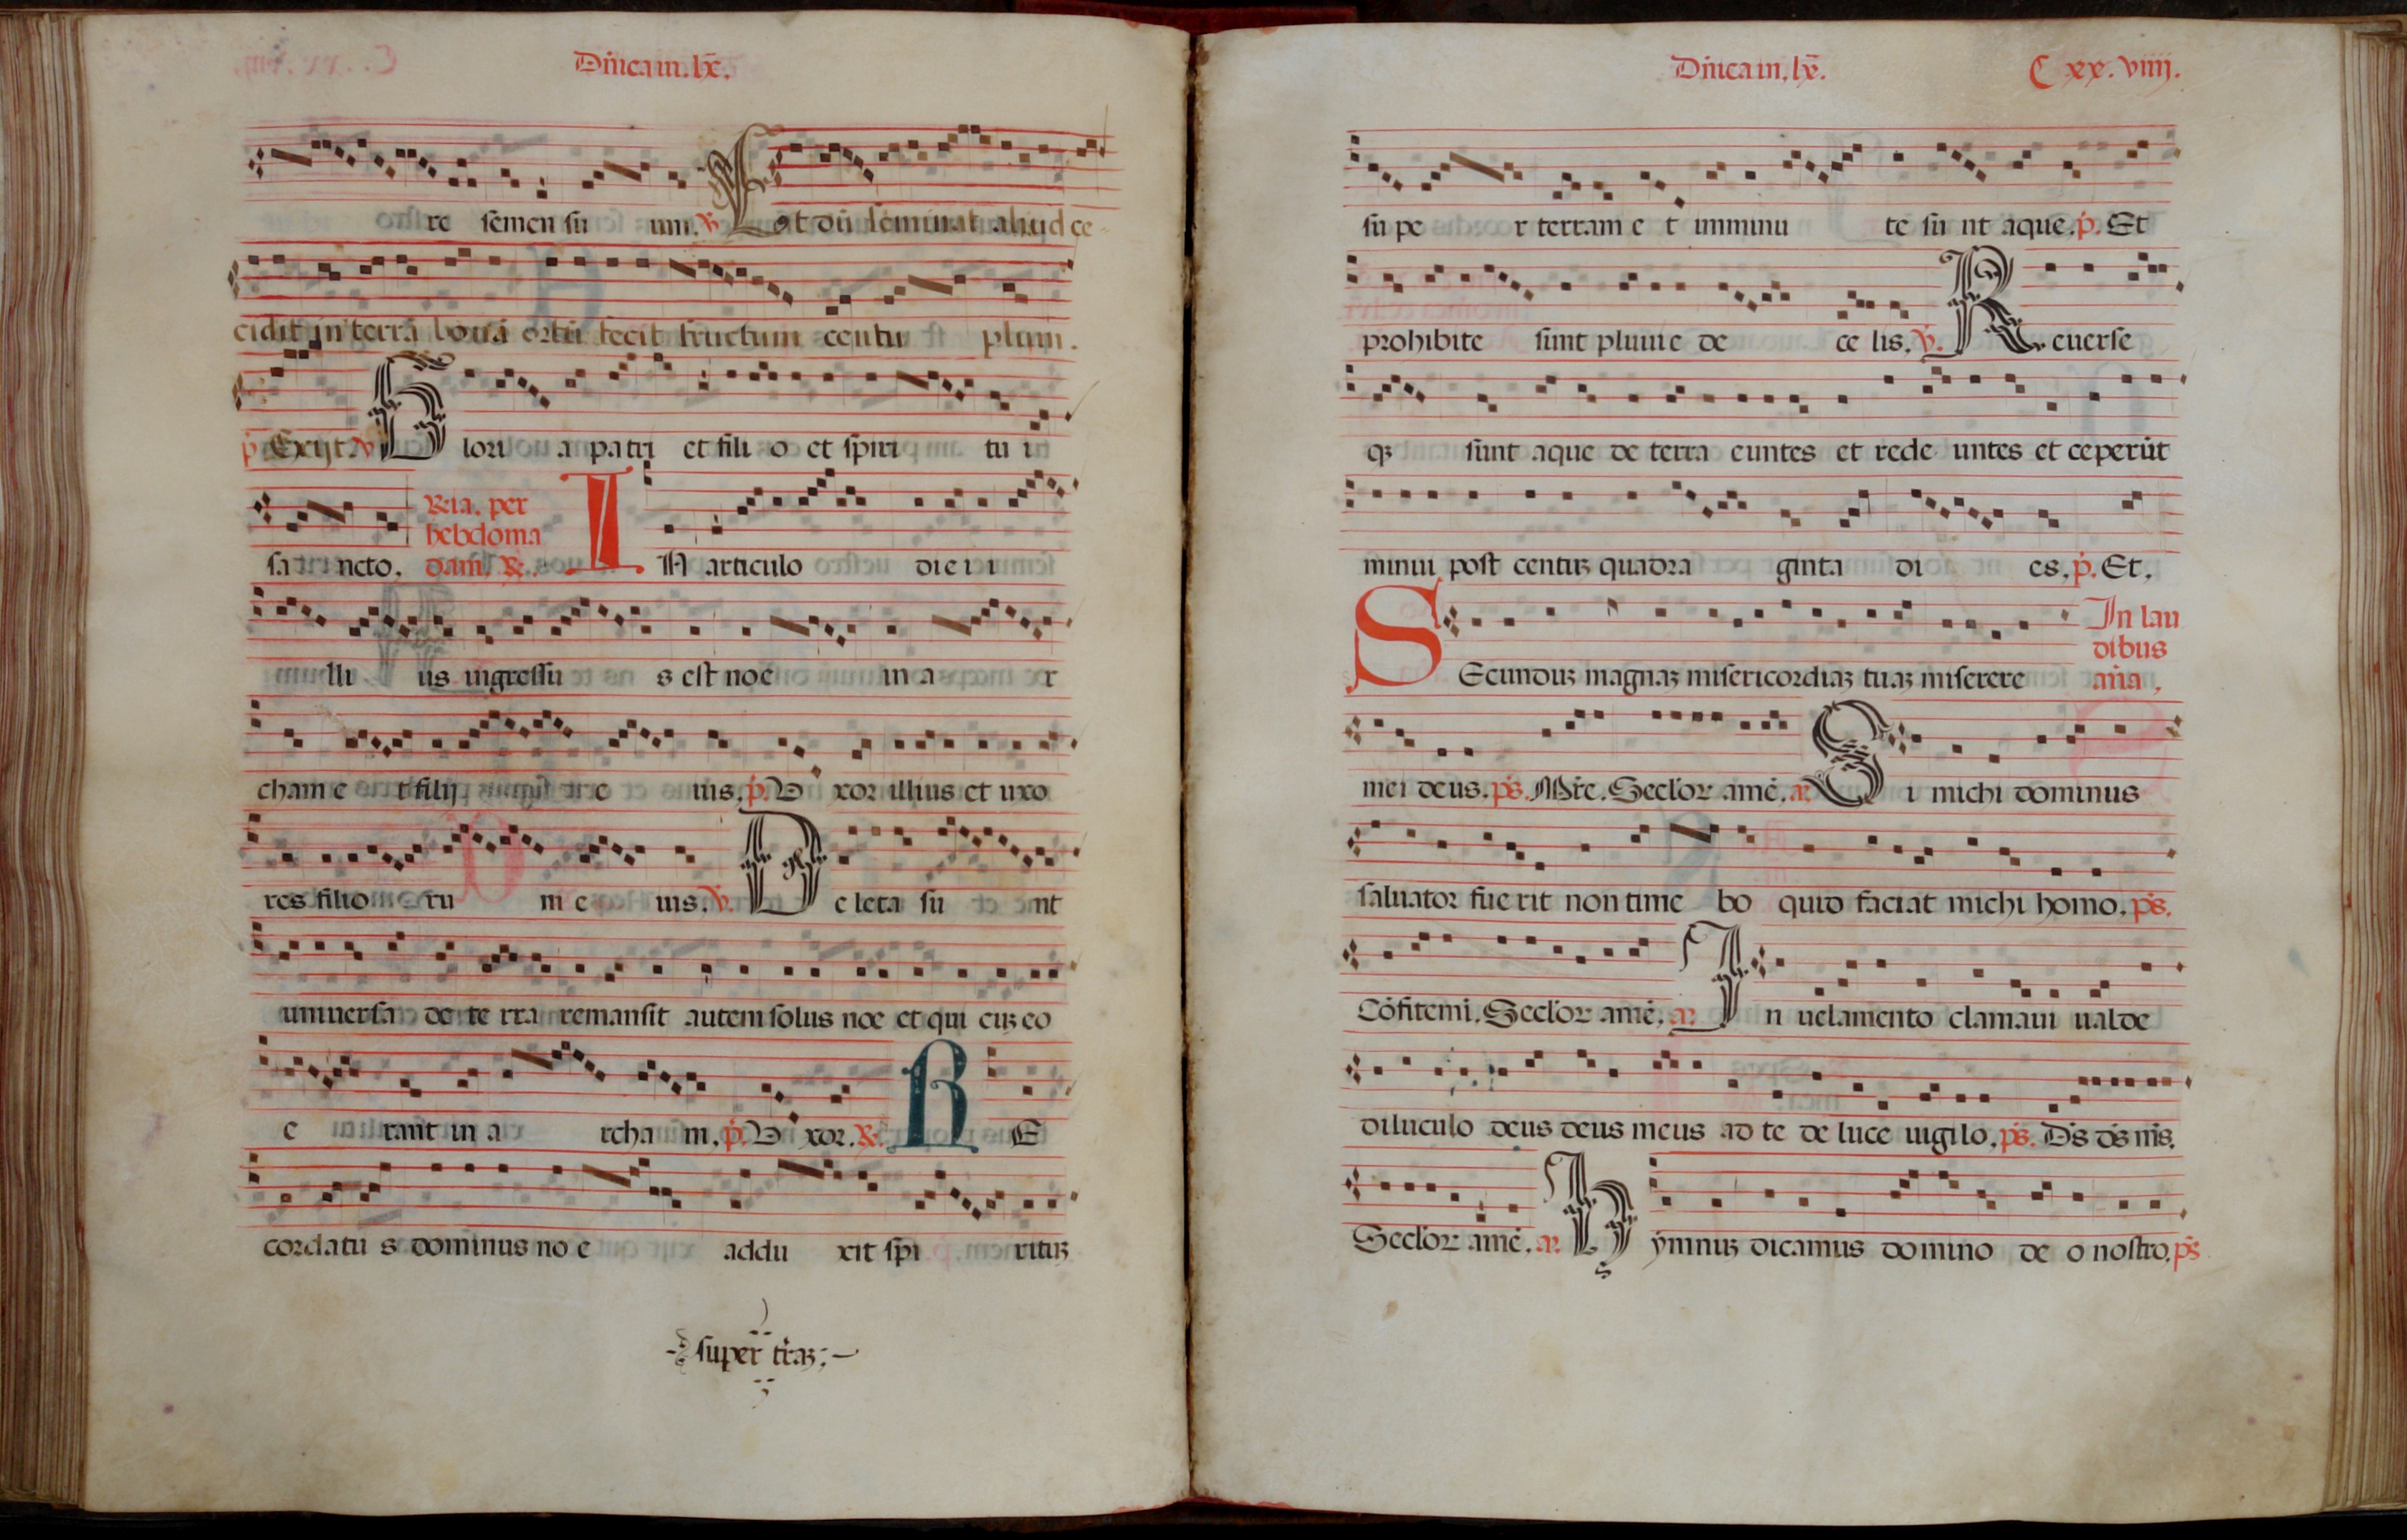 Dn̄ica in .lx̄.
re semen su um. ℣ Et dū seminat aliud ce
cidit in terrā bonā ortū fecit fructum centu plum.
p̄. Exijt. ℣ Glori a patri et fili o et spiri tu i
sa ncto. Rı̄a. per
hebdoma
dam. ℟. IN articulo die i i
lli us ingressu s est noe in a r
cham e t filij e ius. p̄. Uxor illius et uxo
res filio ru m e ius. ℣. Deleta su nt
universa de te rra remansit autem solus noe et qui cuꝫ eo
e rant in a rcha m. p̄. Uxor. ℟. RE
cordatu s dominus no e addu xit spi rituꝫ
super tr̄aꝫ
Dn̄ica in .lx̄. C xx.viiij.
supe r terram e t imminu te su nt aque. p̄. Et
prohibite sunt pluuie de ce lis. ℣. Reuerse
qꝫ sunt aque de terra euntes et rede untes et ceperūt
minui post centuꝫ quadra ginta di es. p̄. Et.
In lau
dibus
SEcunduꝫ magnaꝫ misericordiaꝫ tuaꝫ miserere an̄a.
mei deus. ps̄. Mīre. Seclor̄ amē. ar. Si michi dominus
saluator fuerit non time bo quid faciat michi homo. ps̄.
Cōfitemi. Seclor̄ amē. ar. In uelamento clamaui ualde
diluculo deus deus meus ad te de luce uigilo. ps̄. Ds̄ ds̄ ms̄.
Seclor̄ amē. ar. hymnuꝫ dicamus domino de o nostro. ps̄